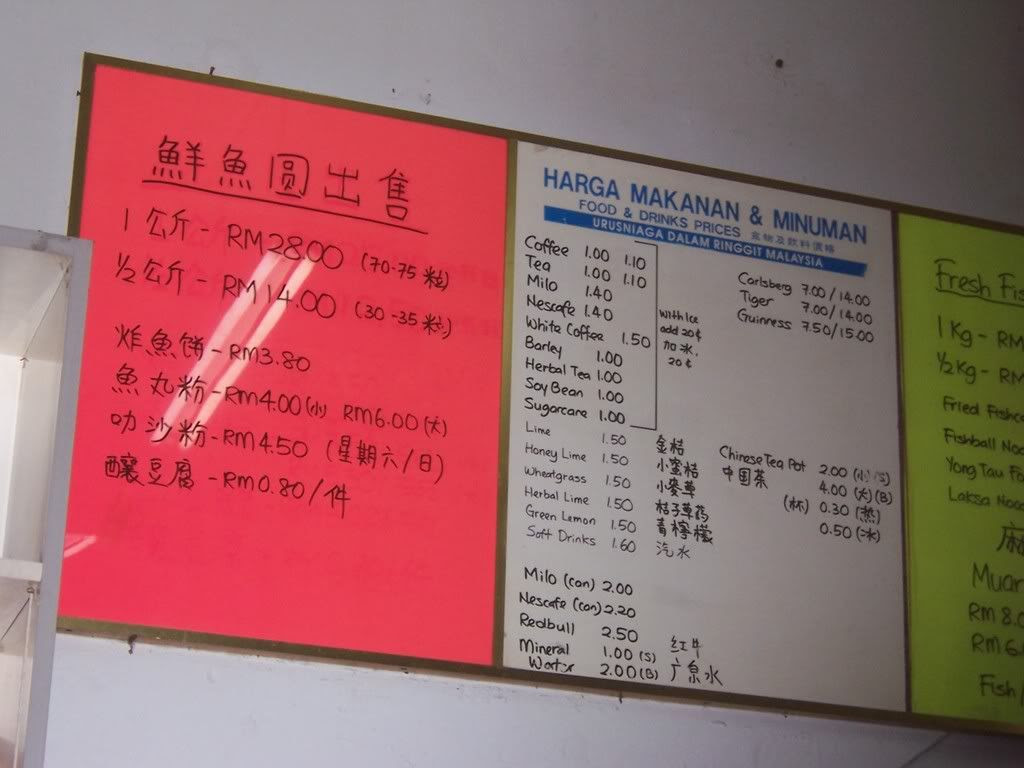 鮮魚圆出售
1公斤 - RM28.00 (70-75粒)
½公斤 - RM14.00 (30-35粒)
炸魚饼 - RM3.80
魚丸粉 - RM4.00(小) RM6.00(大)
叻沙粉 - RM4.50 (星期六/日)
釀豆腐 - RM0.80/件
HARGA MAKANAN & MINUMAN
FOOD & DRINKS PRICES 食物及飲料價格
URUSNIAGA DALAM RINGGIT MALAYSIA
Coffee 1.00 1.10
Tea 1.00 1.10
Milo 1.40
Nescafe 1.40
White Coffee 1.50
Barley 1.00
Herbal Tea 1.00
Soy Bean 1.00
Sugarcare 1.00
With Ice
add 20¢
加冰,
20¢
Lime 1.50 金桔
Honey Lime 1.50 小蜜桔
Wheatgrass 1.50 小麥草
Herbal Lime 1.50 桔子草药
Green Lemon 1.50 青檸檬
Soft Drinks 1.60 汽水
Milo (can) 2.00
Nescafe (can) 2.20
Redbull 2.50 红牛
Mineral 1.00 (S)
Water 2.00 (B) 广泉水
Carlsberg 7.00/14.00
Tiger 7.00/14.00
Guinness 7.50/15.00
Chinese Tea Pot 2.00 (小)(S)
中国茶 4.00 (大)(B)
(杯) 0.30 (热)
0.50 (冰)
Fresh Fis
1 Kg - RM
½ Kg - RM
Fried Fishca
Fishball Noo
Yong Tau Fo
Laksa Nood
Muar
RM 8.0
RM 6.
Fish